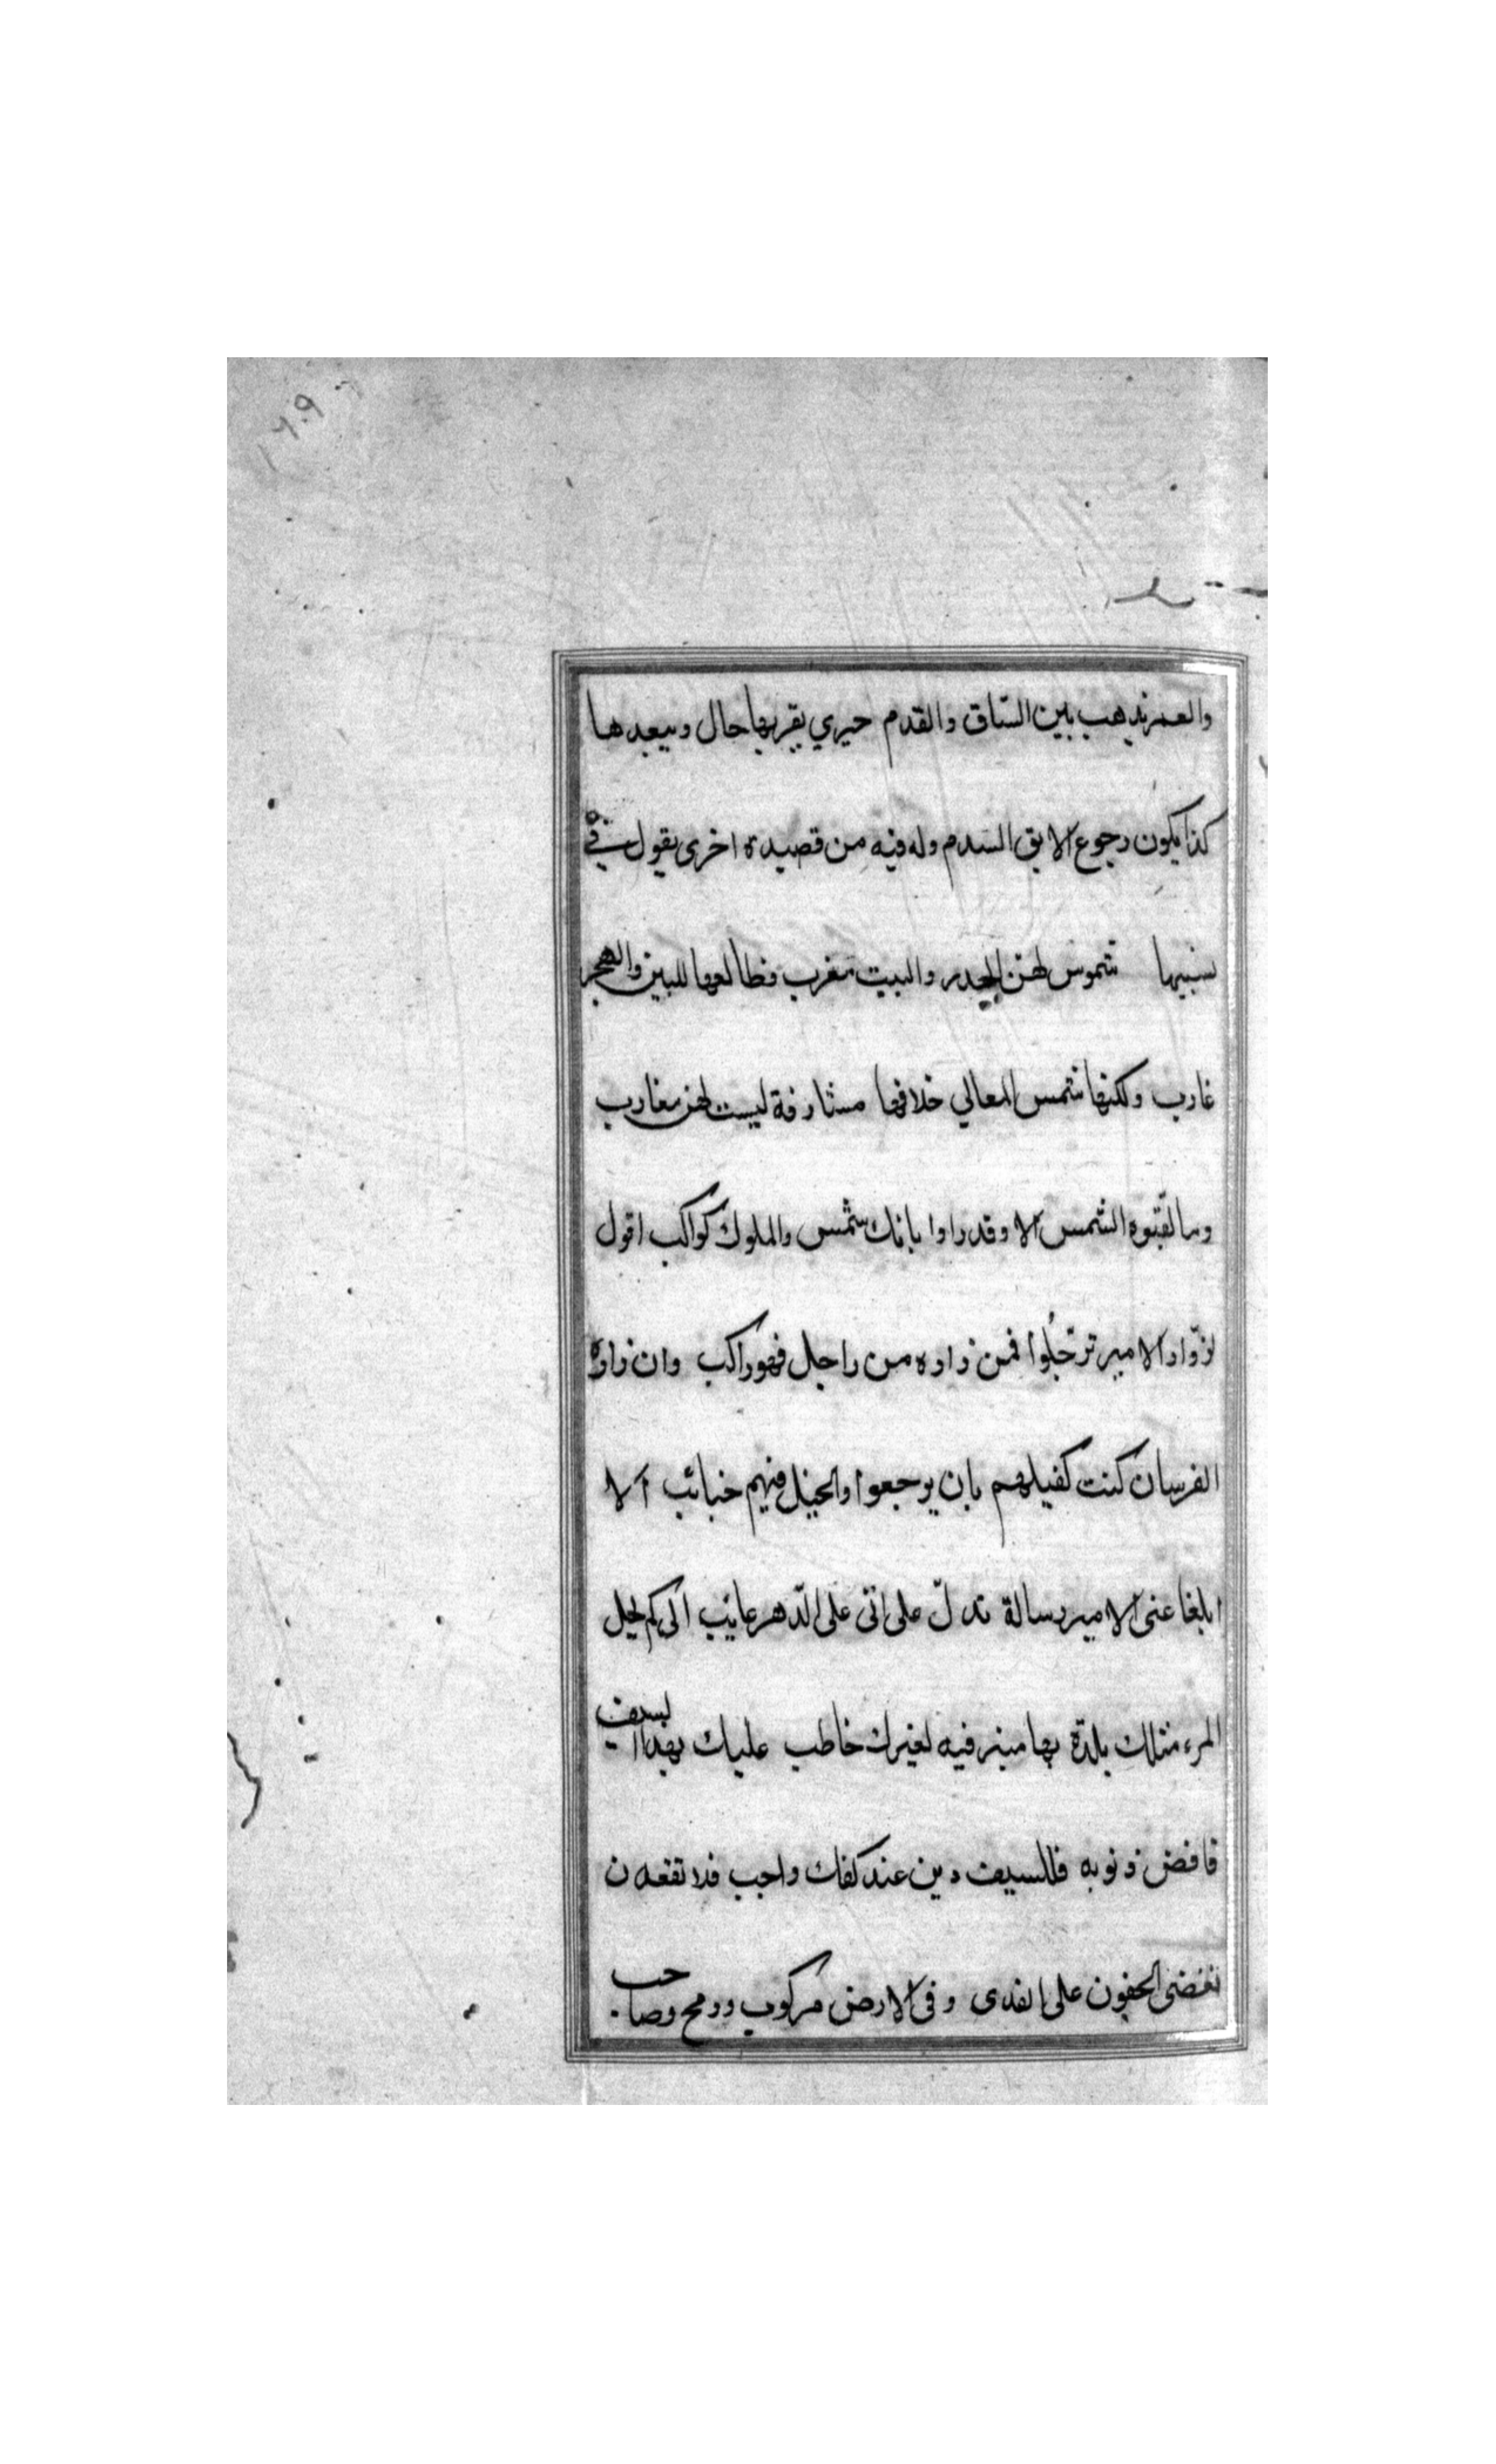 والعمر يذهب بين الساق والقدم حيري يقربها حال ويبعدها
كذا يكون رجوع الابق السدم وله فيه من قصيدة اخرى يقول في
نسيبها شموس لهن الخدر والبيت مغرب فطالعها للبين والهجر
غارب ولكنها شمس المعالي خلافها مشارفة ليست لهن مغارب
وما لقبوه الشمس الا وقد راوا بانك شمس والملوك كواكب اقول
لزوّار الامير ترجّلوا فمن زاره من راجل فهو راكب وان زاره
الفرسان كنت كفيلهم بان يرجعوا والخيل فيهم جنائب الا
ابلغا عنى الامير رسالة تدلّ على انى على الدّهر عاتب الى كم يحل
المرء مثلك بلدة بها منبر فيه لغيرك خاطب عليك بهذا السيف
فاقض ذنوبه فللسيف دين عند كفك واجب فلا تقعدن
تغضى الجفون على القذى وفى الارض مركوب ورمح وصاحب